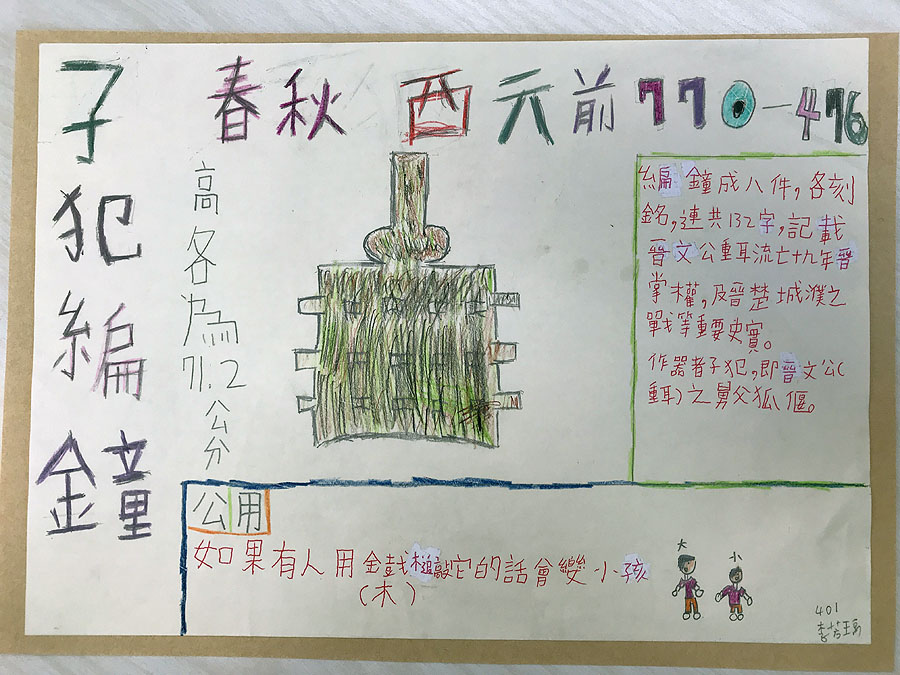 子犯編鐘
春秋 西元前770-476
高各為71.2公分
編鐘成八件,各刻
銘,連共132字,記載
晉文公重耳流亡十九年晉
掌權,及晉楚城濮之
戰等重要史實。
作器者子犯,即晉文公(
重耳)之舅父狐偃。
公用
如果有人用金鼓槌敲它的話會變小孩
(木)
大 小
401